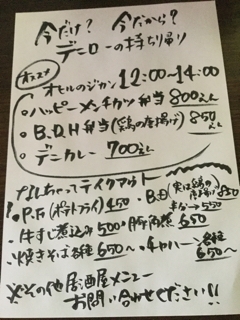 今だけ? 今だから?
デニローの持ち帰り
オススメ
オヒルのジカン 12:00~14:00
・ハッピーメンチカツ弁当 800えん
・B.D.H弁当(鶏の唐揚げ) 850えん
・デニカレー 700えん
なんちゃってテイクアウト
・P.F(ポテトフライ) 450
・B.D(実は鶏の唐揚げ) 850
550
・牛すじ煮込み 500
650
・焼きそば各種 650~
・チャーハン各種 650~
※その他居酒屋メニュー
お問い合わせください!!